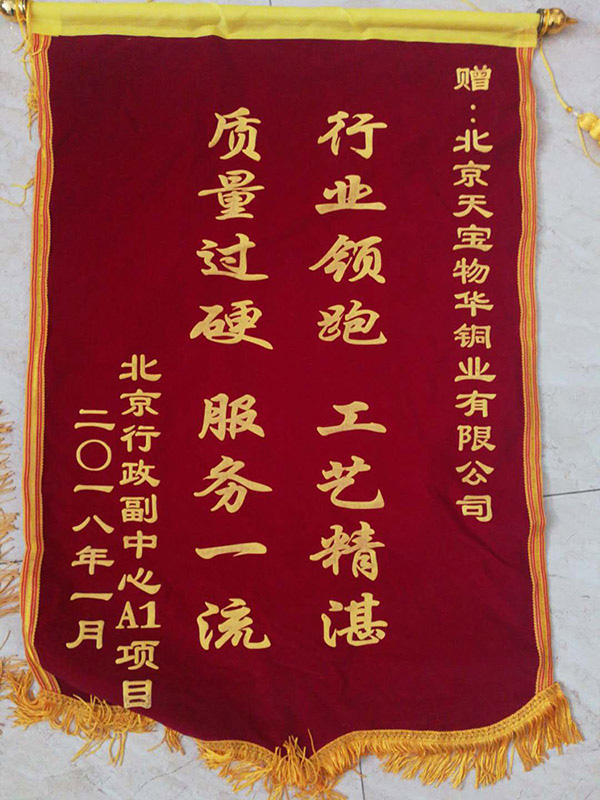 赠：北京天宝物华铜业有限公司
行业领跑 工艺精湛
质量过硬 服务一流
北京行政副中心A1项目
二〇一八年一月